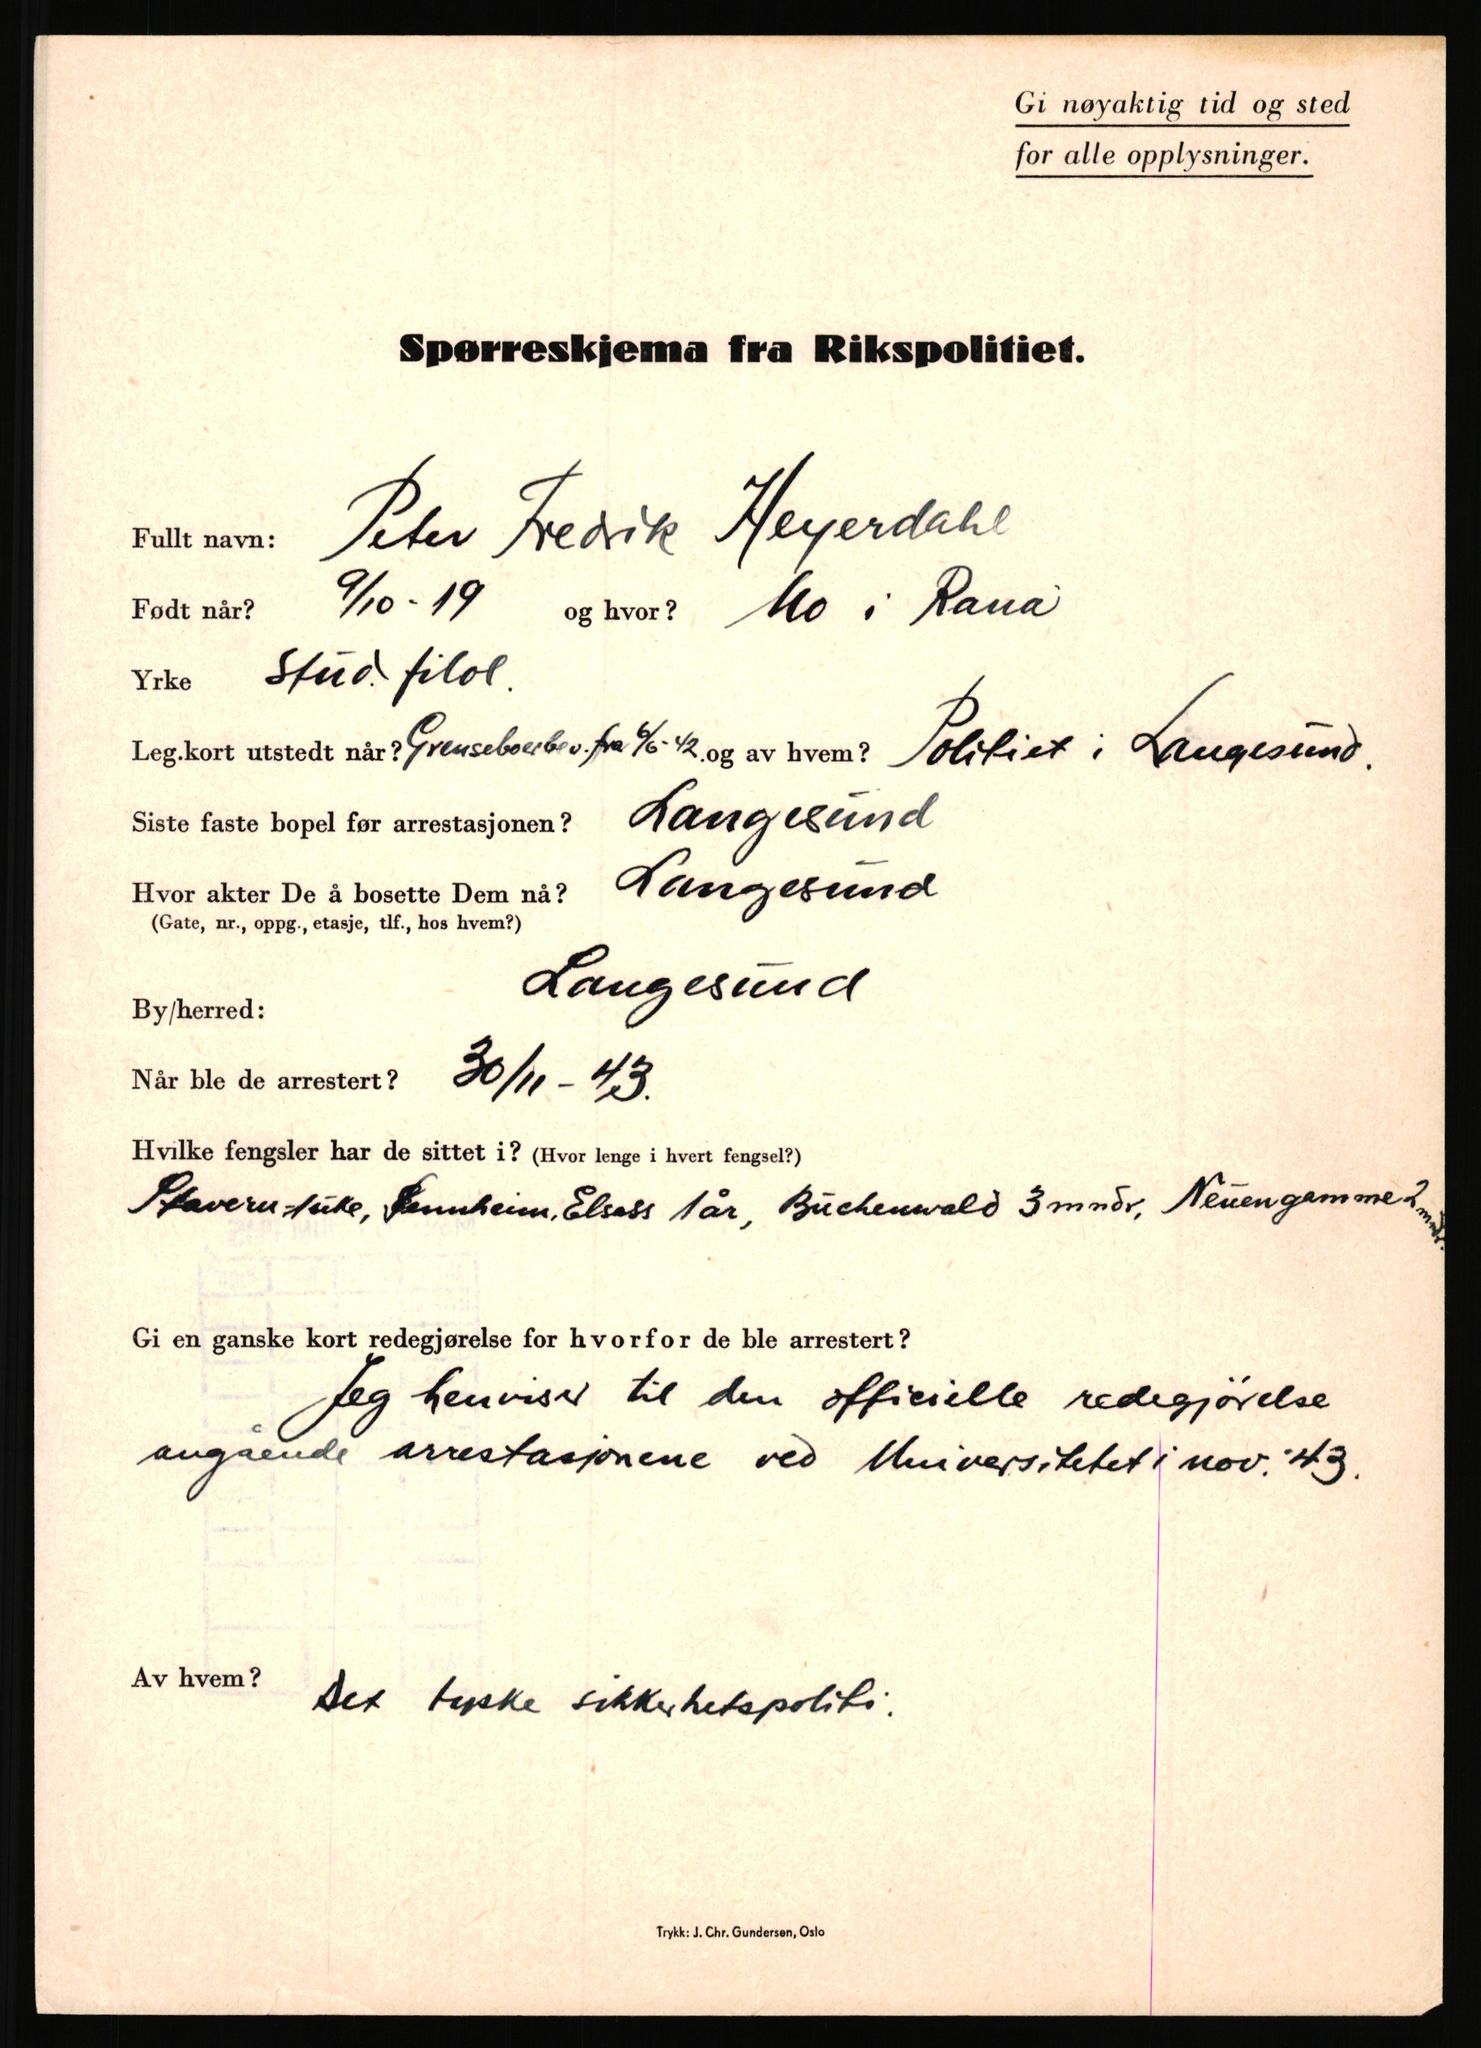 Gi nøyaktig tid og sted
for alle opplysninger.
Spørreskjema fra Rikspolitiet.
Fullt navn: Peter Fredrik Heyerdahl
Født når? 9/10 - 19 og hvor? Mo i Rana
Yrke Stud. filol.
Leg.kort utstedt når? Grenseboerbev. fra 6/6-42 og av hvem? Politiet i Langesund.
Siste faste bopel før arrestasjonen? Langesund
Hvor akter De å bosette Dem nå? Langesund
(Gate, nr., oppg., etasje, tlf., hos hvem?)
By/herred: Langesund
Når ble de arrestert? 30/11 - 43.
Hvilke fengsler har de sittet i? (Hvor lenge i hvert fengsel?)
Stavern 1uke, Sennheim, Elsass 1 år, Buchenwald 3 mndr, Neuengamme 2 mndr.
Gi en ganske kort redegjørelse for hvorfor de ble arrestert?
Jeg henviser til den officielle redegjørelse
angående arrestasjonene ved Universitetet i nov. '43.
Av hvem? Det tyske sikkerhetspoliti.
Trykk: J. Chr. Gundersen, Oslo